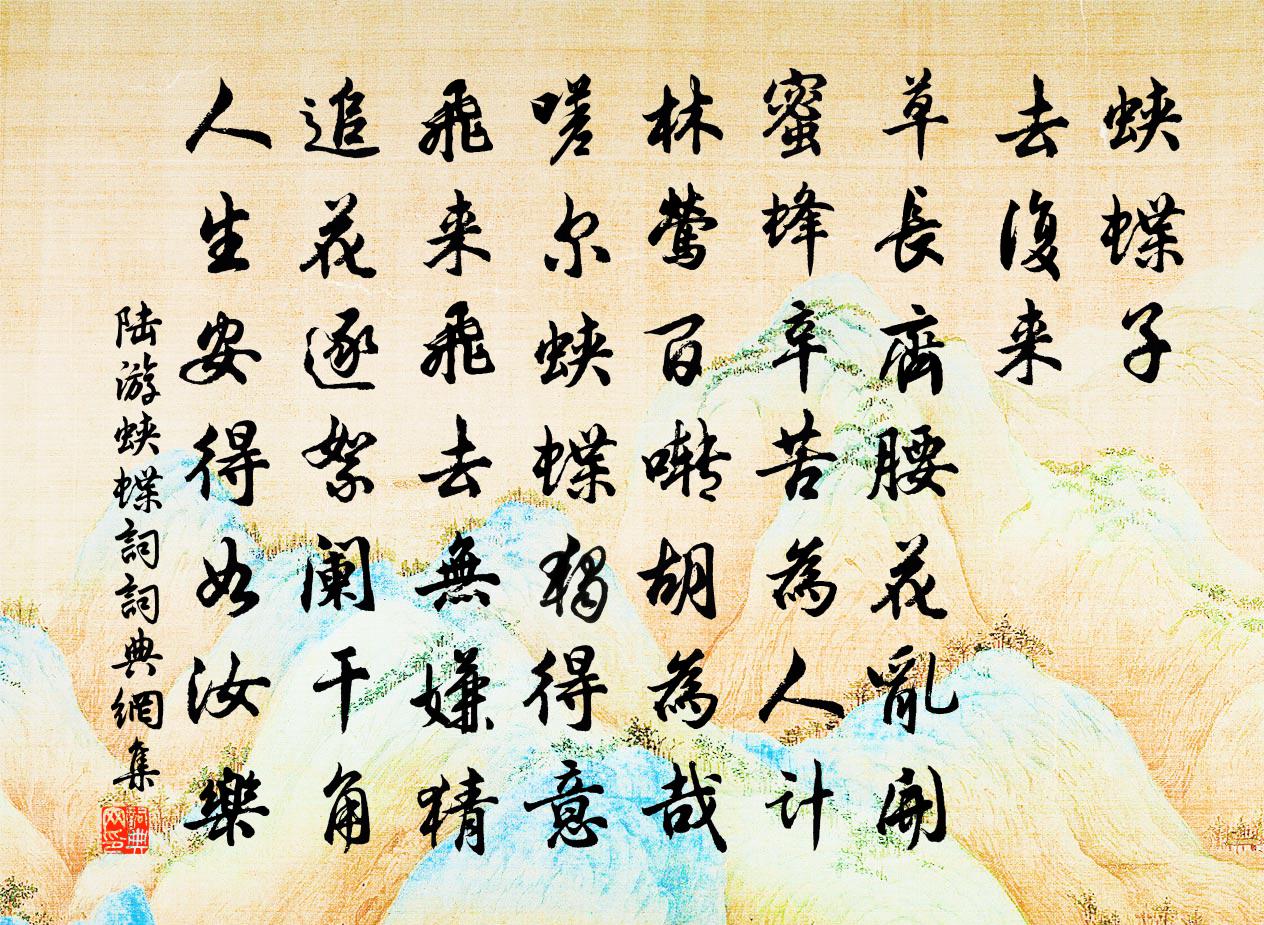 蛺蝶子
去復来
草長齊腰花亂開
蜜蜂辛苦為人计
林鶯百囀胡為哉
嗟尔蛺蝶獨得意
飛来飛去無嫌猜
追花逐絮阑干角
人生安得如汝樂
陆游蛺蝶詞詞典網集
詞典网印